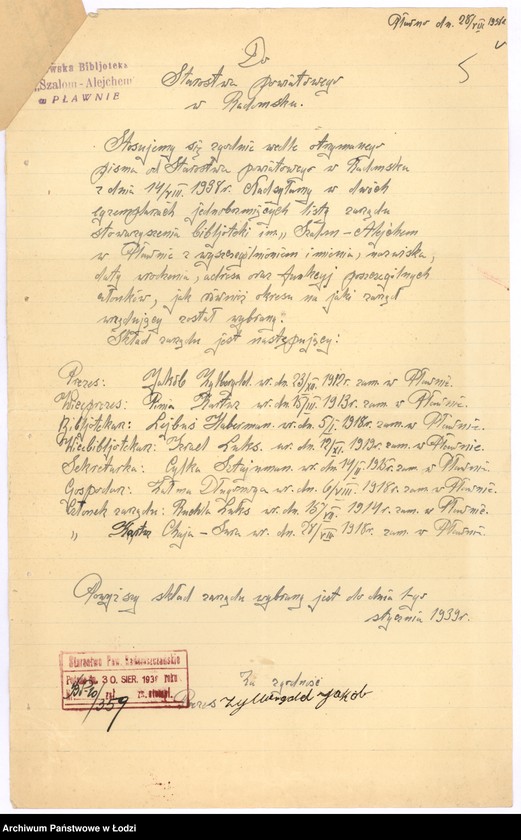 Pławno dn. 28/VIII 1938r.
Bibljoteka
"Szalom-Alejchem"
w PŁAWNIE
Do
Starostwa powiatowego
w Radmsku.
Stosujemy się zgodnie wedle otrzymanego
pisma od Starostwa powiatowego w Radmsku
z dnia 14/VIII. 1938r. Nadsyłamy w dwóch
egzemplarzach jednobrzmiących listę zarządu
stowarzyszenia bibljoteki im. „Szalom-Alejchem
w Pławnie z wyszczególnieniem imienia, nazwiska,
daty urodzenia, adresu oraz funkcyj poszczególnych
członków, jak również okresu na jaki zarząd
urzędujący został wybrany.
Skład zarządu jest następujący:
Prezes: Jakób Zylbergold ur. dn. 23/XII. 1912r. zam. w Pławnie.
Wiceprezes: ur. dn. 15/III. 1913r. zam. w Pławnie.
Bibljotekarz: Lejbuś Huberman ur. dn. 5/I. 1918r. zam. w Pławnie.
Wicebibljotekarz: Izrael Luks. ur. dn. 12/XI. 1919r. zam. w Pławnie.
Sekretarka: Cytka Sztajnman. ur. dn. zam. w Pławnie.
Gospodarz: ur. dn. 6/VIII. 1918r. zam. w Pławnie.
Członek zarządu: Ruchla Luks ur. dn. 1914r. zam. w Pławnie.
„ Chaja-Sura ur. dn. 1918r. zam. w Pławnie.
Powyższy skład zarządu wybrany jest do dnia 1-go
stycznia 1939r.
Za zgodność
Prezes Zylbergold Jakób
Starostwo Pow. Radomszczańskie
30 SIER. 193 roku
zał. zn. stempl.
359
Archiwum Państwowe w Łodzi